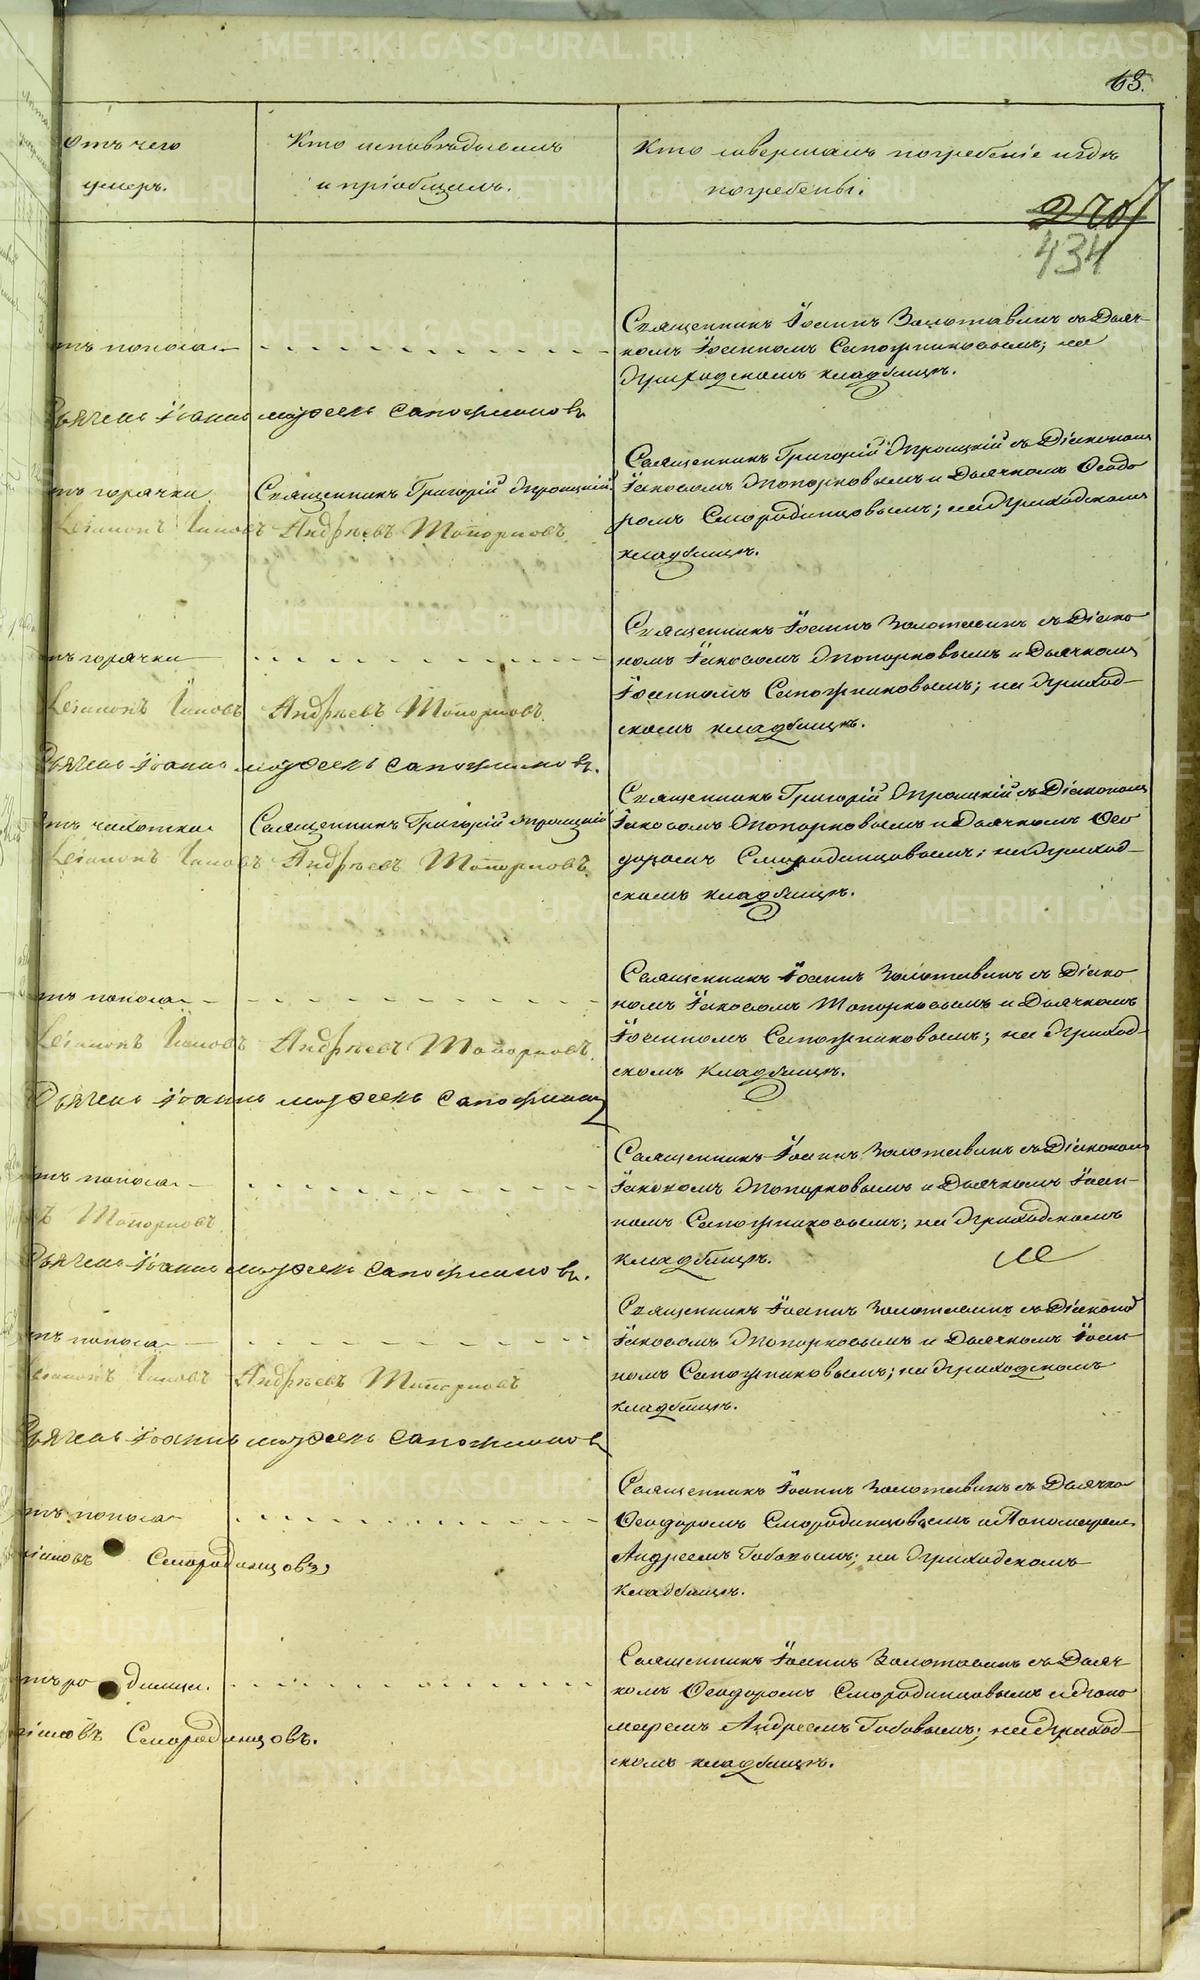 63.
Отъ чего
умеръ.
Кто исповѣдывалъ
и пріобщалъ.
Кто совершалъ погребеніе и гдѣ
погребены.
270
434
отъ поноса
Священникъ Іоаннъ Золотавинъ съ Дьяч-
комъ Іоанномъ Сапожниковымъ; на
Приходскомъ кладбищѣ.
Дьячекъ Іоаннъ Сапожниковъ
отъ горячки
Священникъ Григорій Троицкій
Священникъ Григорій Троицкій съ Діакономъ
Іаковомъ Топорковымъ и Дьячкомъ Ѳеодо
ромъ Смородинцовымъ; на Приходскомъ
кладбищѣ.
Діаконъ Іаковъ Андреевъ Топорковъ.
отъ горячки
Священникъ Іоаннъ Золотавинъ съ Діако
номъ Іаковомъ Топорковымъ и Дьячкомъ
Іоанномъ Сапожниковымъ; на Приход-
скомъ кладбищѣ.
Діаконъ Іаковъ Андреевъ Топорковъ.
Дьячекъ Іоаннъ Сапожниковъ.
отъ чахотки
Священникъ Григорій Троицкій
Священникъ Григорій Троицкій съ Діакономъ
Іаковомъ Топорковымъ и Дьячкомъ Ѳео
доромъ Смородинцовымъ; на Приход-
скомъ кладбищѣ.
Діаконъ Іаковъ Андреевъ Топорковъ.
отъ поноса
Священникъ Іоаннъ Золотавинъ съ Діако
номъ Іаковомъ Топорковымъ и Дьячкомъ
Іоанномъ Сапожниковымъ; на Приход-
скомъ кладбищѣ.
Діаконъ Іаковъ Андреевъ Топорковъ.
Дьячекъ Іоаннъ Сапожников
отъ поноса
Священникъ Іоаннъ Золотавинъ съ Діакономъ
Іаковомъ Топорковымъ и Дьячкомъ Іоан-
номъ Сапожниковымъ; на Приходскомъ
кладбищѣ.
Топорковъ
Дьячекъ Іоаннъ Сапожниковъ.
отъ поноса
Священникъ Іоаннъ Золотавинъ съ Діаконо
Іаковомъ Топорковымъ и Дьячкомъ Іоан
номъ Сапожниковымъ; на Приходскомъ
кладбищѣ.
Діаконъ Іаковъ Андреевъ Топорковъ
Дьячекъ Іоаннъ Сапожников
отъ поноса
Священникъ Іоаннъ Золотавинъ съ Дьячко
Ѳеодоромъ Смородинцовымъ и Пономаремъ
Андреемъ Бобовымъ; на Приходскомъ
кладбищѣ.
Смородинцовъ
отъ родимца
Священникъ Іоаннъ Золотавинъ съ Дьяч-
комъ Ѳеодоромъ Смородинцовымъ и Поно
маремъ Андреемъ Бобовымъ; на Приход-
скомъ кладбищѣ.
Смородинцовъ.